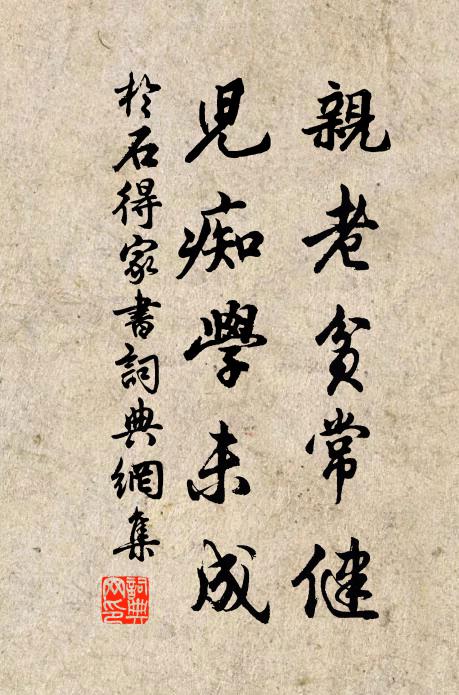 親老貧常健
兒痴學未成
於石得家書詞典網集
詞典
网印